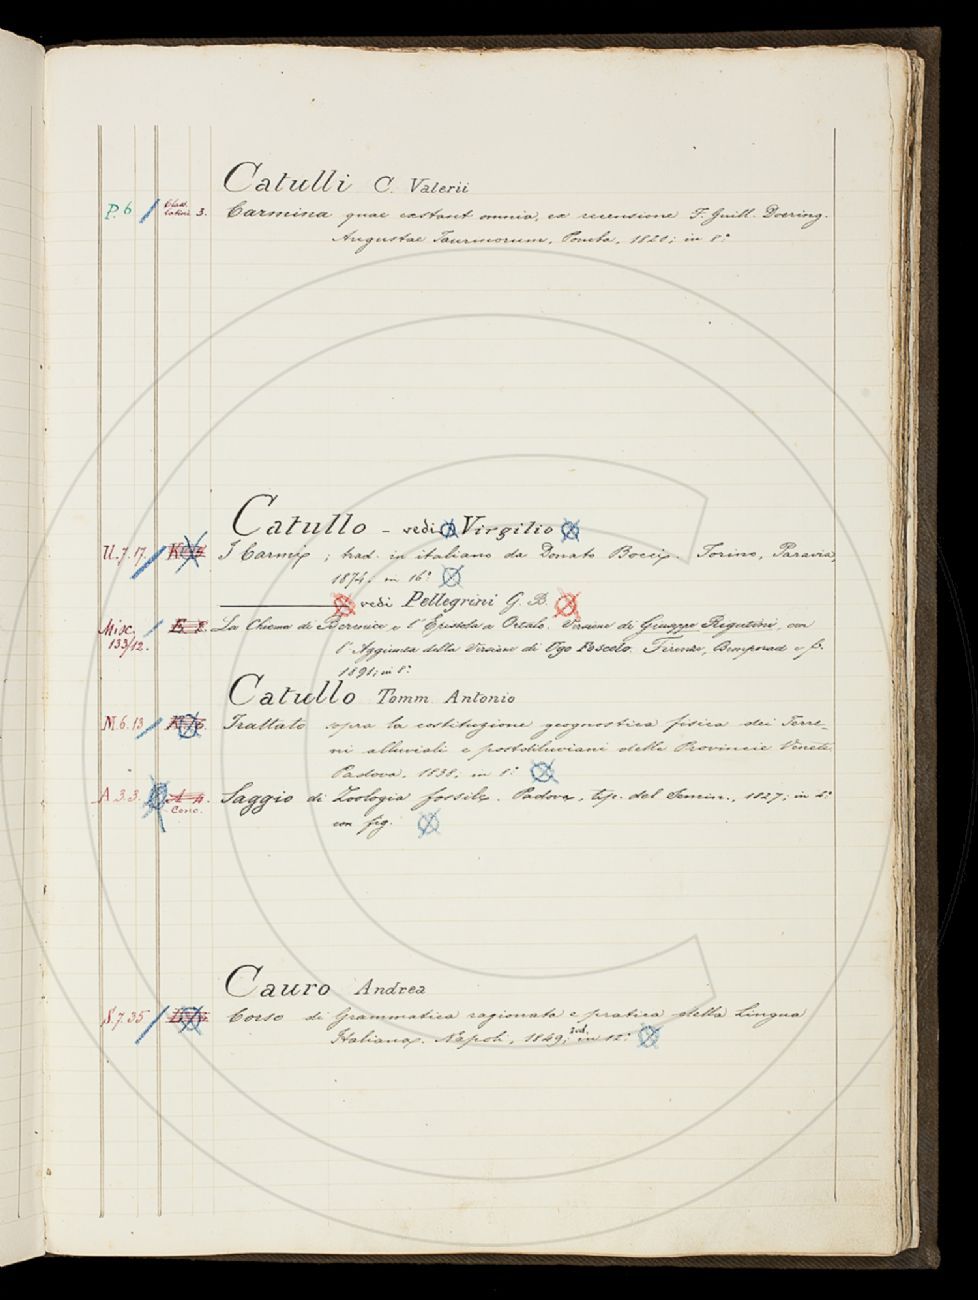 Catulli C. Valerii
P. 6 Class. latini 3. Carmina quae exstant omnia, ex recensione F. Guill. Doering.
Augustae Taurinorum, Pomba, 1820; in 8°
Catullo - vedi Virgilio
U. 7. 17. I Carmi; trad. in italiano da Donato Bocci. Torino, Paravia,
1874. in 16°
vedi Pellegrini G. B.
Misc. 133/12. La Chioma di Berenice e l'Epistola a Ortalo. Versione di Giuseppe Rigutini, con
l'Aggiunta della Versione di Ugo Foscolo. Firenze, Bemporad e f.
1891; in 8°
Catullo Tomm. Antonio
M. 6. 13 Trattato sopra la costituzione geognostica fisica dei Terre-
ni alluviali e postdiluviani delle Provincie Venete.
Padova, 1838, in 8°
A. 3. 3. A 4. Conc. Saggio di Zoologia fossile. Padova, tip. del Semin., 1827; in 4°
con fig.
Cauro Andrea
S. 7. 35 Corso di Grammatica ragionata e pratica della Lingua
Italiana. Napoli, 1849; in 12°